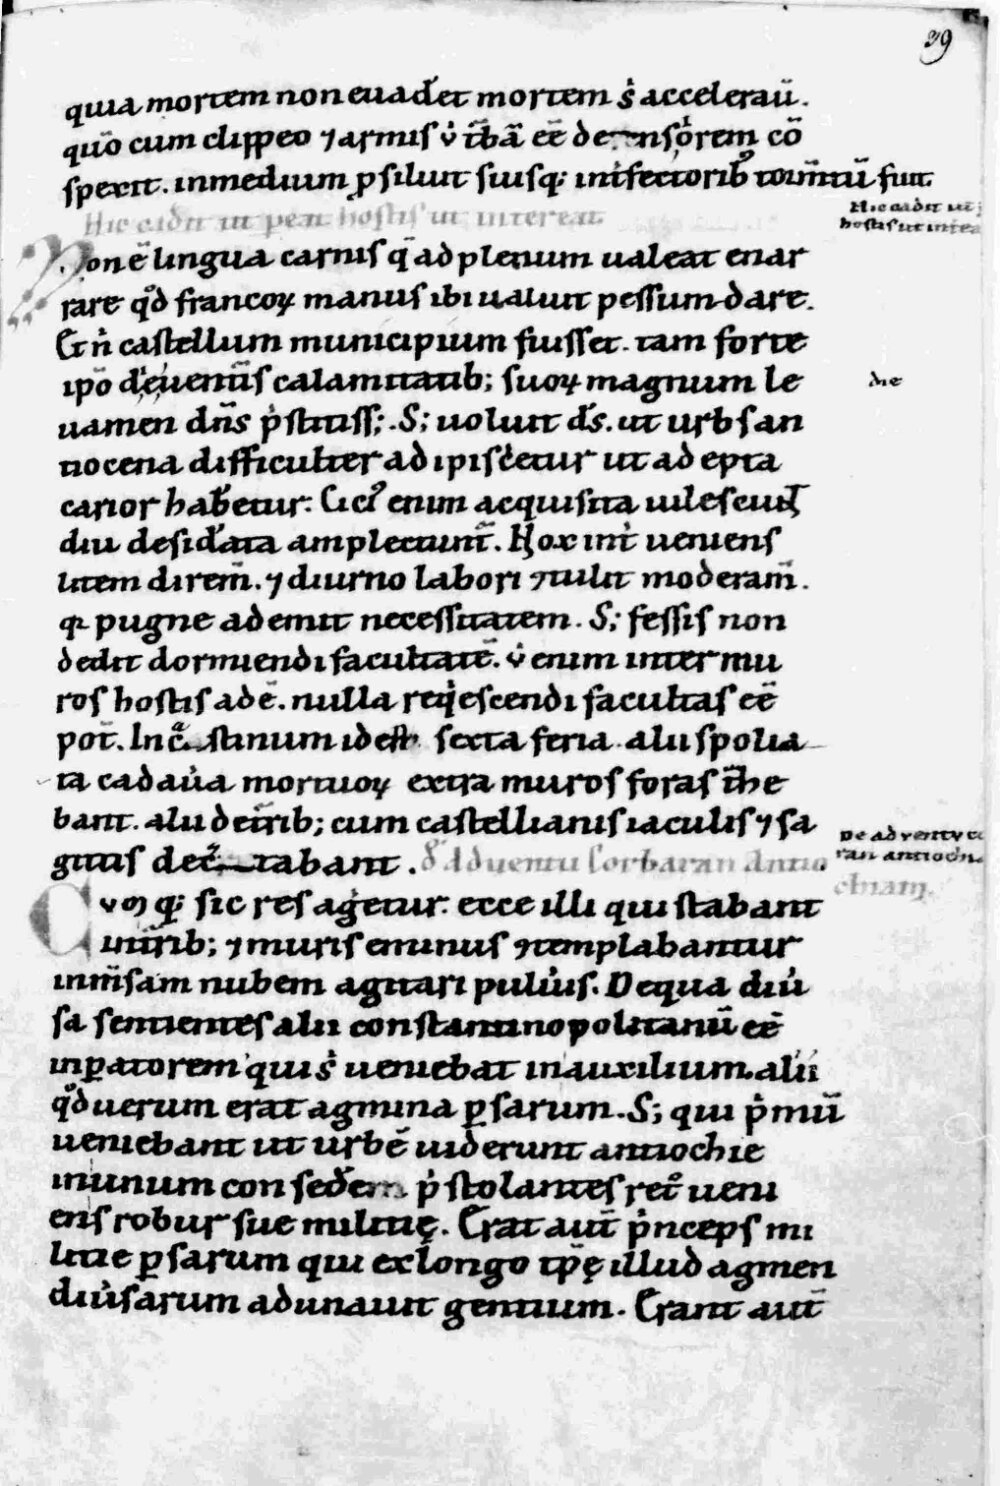 39
quia mortem non euad͛et mortem s̓ accelerau̅.
quo̅ cum clippeo ⁊ armis u̓ t̅ba̅ ee̅ defensorem co̅
spexit. inmedium ꝓsiluit suisq; int͛fectorib; tourm̅tu̅ fuit.
Hic cadit ut pen hostis ut intereat
Hic cadit ut
hostis ut interea
Non e̅ lingua carnis q̅ ad plenum ualeat enar
rare qd̕ francoꝝ manus ibi ualuit pessum dare.
Et n̓ castellum municipium fuisset. tam forte
ipo̅ d͛e euentu̅s calamitatib; suoꝝ magnum le
uamen dn̅s p̓stitiss;. S; uoluit d̅s. ut urbs an
tiocena difficulter adipisc͛etur ut adepta
carior hab͛etur. Cic̕ enim acquisita uilescunt̅
diu desid͛ata amplectunt̅. Nox int̓ ueniens
litem direm̅. ⁊ diurno labori ⁊tulit moderam̅.
q̅ pugne ademit necessitatem. S; fessis non
dedit dormiendi facultate̅. u̓ enim inter mu
ros hostis ade̅. nulla req̓escendi facultas ee̅
pot̅. In c̅astinum id est sexta feria. alii spolia
ta cadau̓a mortuoꝝ extra muros foras t̅he
bant. alii de t̅rrib; cum castellianis iaculis ⁊ sa
gittis dec̅tabant. d̅ Aduentu Corbaran Antio
chnam.
De adventu co
ran antiochn.
Cvm q; sic res ag̓etur. ecce illi qui stabant
in tu̅rrib; ⁊ muris eminus ⁊templabantur
inm̅sam nubem agitari puluu̓s. De qua diu̓
sa sentientes alii constantinopolitanu̅ ee̅
inꝑatorem qui s̓ ueniebat in auxilium. alii
qd̕ uerum erat agmina ꝑsarum. S; qui p̓mu̅
ueniebant ut urbe̅ uiderunt antiochie
inunum consed͛em p̓stolantes ret̕ ueni
ens robur sue militię. Erat aut̅ p̓nceps mi
litie ꝑsarum qui ex longo tp̅ę illud agmen
diu̓sarum adunauit gentium. Erant aut̅